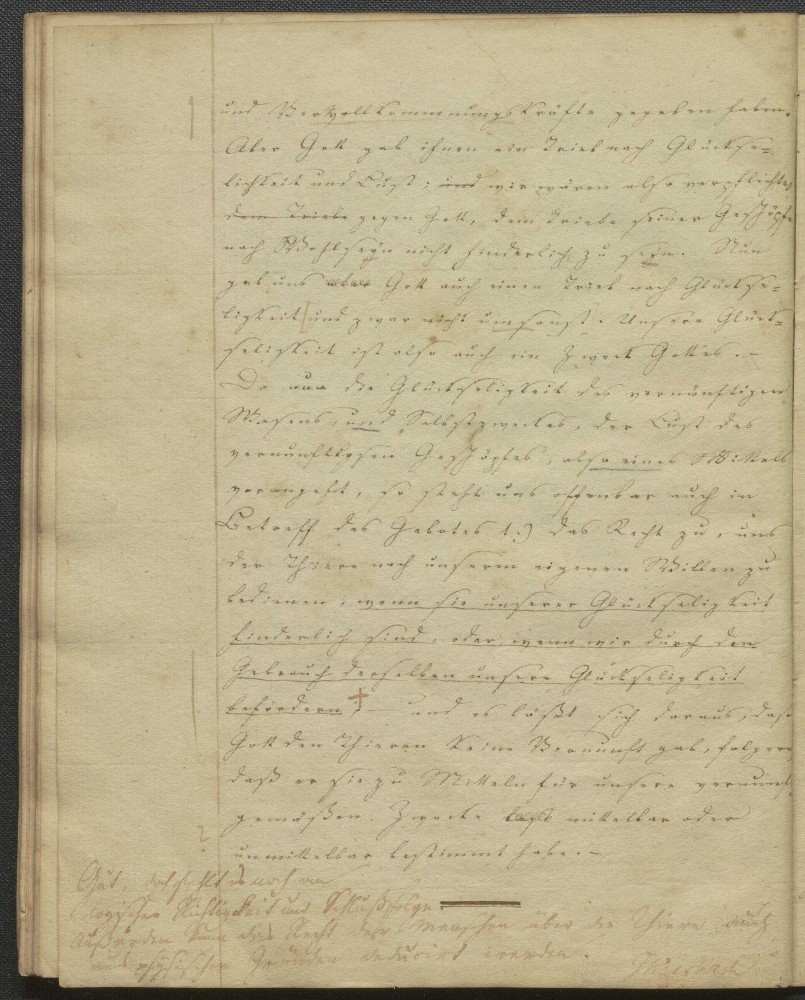 und Vervollkommnungskräfte gegeben haben.
Aber Gott gab ihnen ein Trieb nach Glückse=
lichkeit und Lust; und wir wären also verpflichtet
dem Triebe gegen Gott, dem Triebe seiner Geschöpfe
nach Wohlseyn nicht hinderlich zu seyn. Nun
gab uns aber Gott auch einen Trieb nach Glückse=
ligkeit und zwar nicht umsonst. Unsere Glück=
seligkeit ist also auch ein Zweck Gottes. –
Da nun die Glückseligkeit des vernünftigen
Wesens, und Selbstzweckes, der Lust des
vernunftlosen Geschöpfes, also eines Mittels
vorangeht, so steht uns offenbar auch in
Betreff des Gebotes 1.) das Recht zu, uns
der Thiere nach unserem eigenen Willen zu
bedienen, wenn sie unserer Glückseligkeit
hinderlich sind, oder wenn wir durch den
Gebrauch derselben unsere Glückseligkeit
befördern † – und es läßt sich daraus, daß
Gott den Thieren keine Vernunft gab, folgern
daß er sie zu Mitteln für unsere vernunft
gemäßen Zwecke mittelbar oder
unmittelbar bestimmt habe. –
Gut, doch fehlt es noch an
logischer Richtigkeit und Schlußfolge.
Außerdem kann das Recht der Menschen über die Thiere auch
aus physischen Gründen deducirt werden.